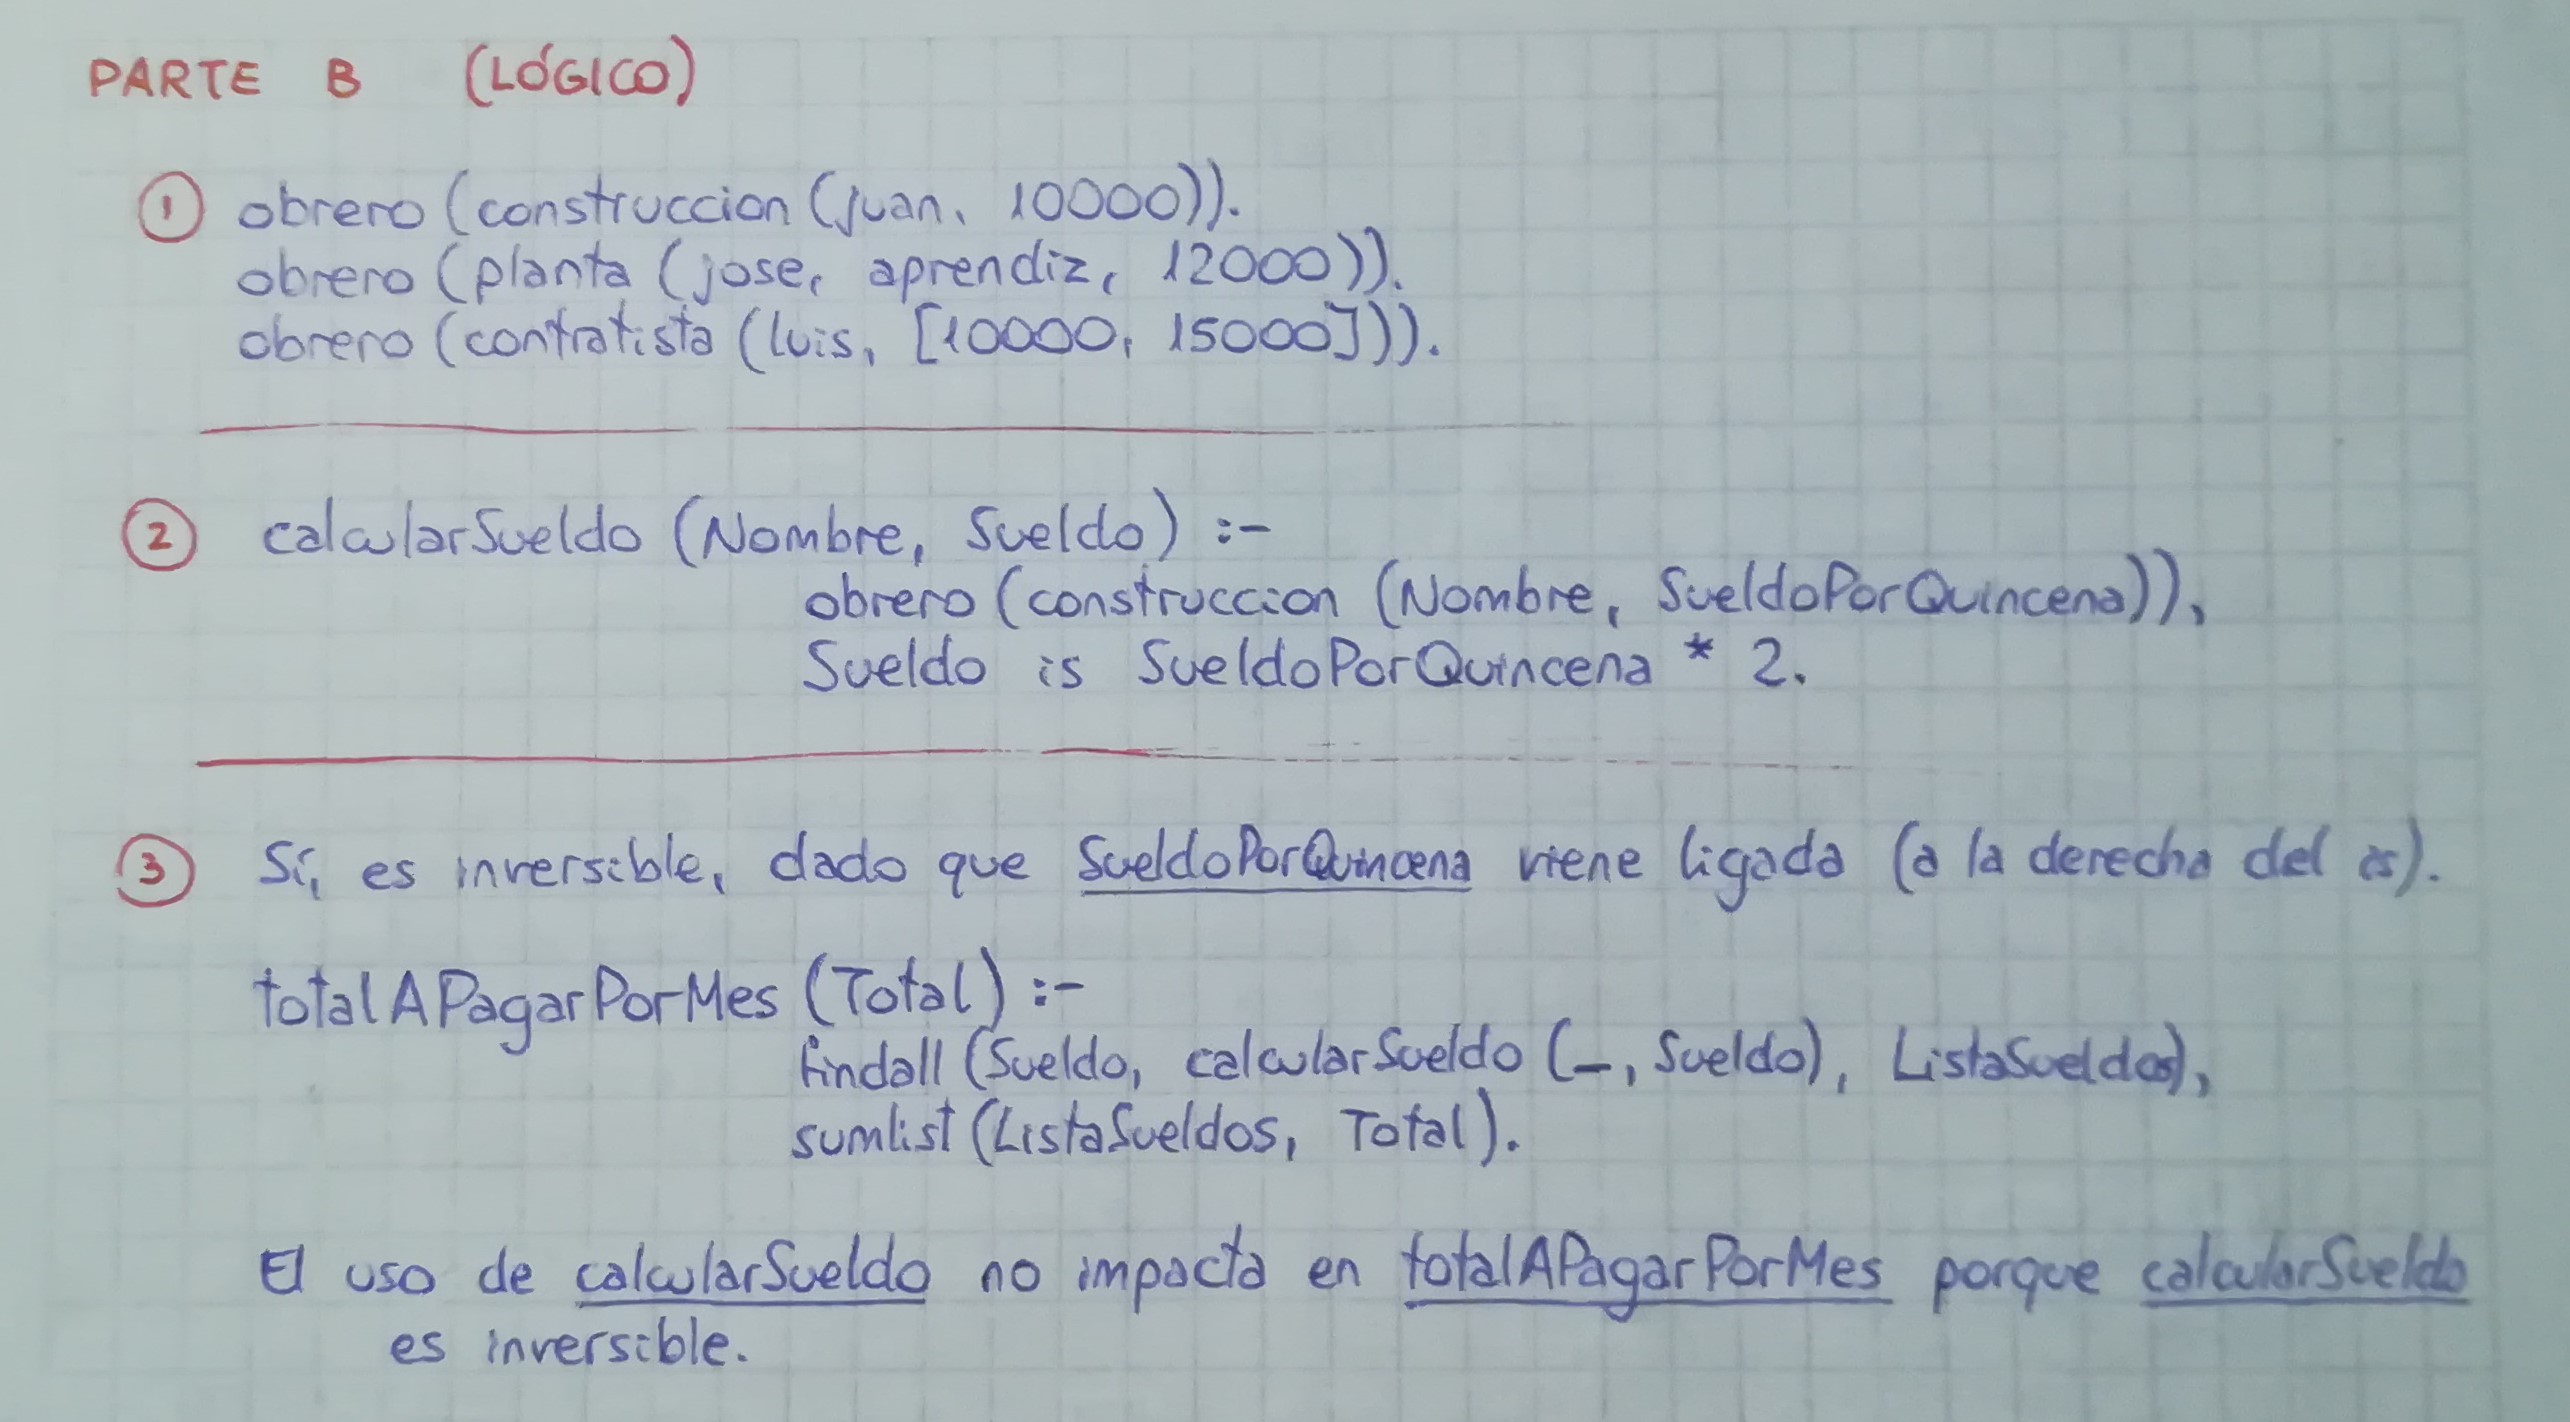 PARTE B (LÓGICO)
① obrero (construccion (juan, 10000)).
obrero (planta (jose, aprendiz, 12000)).
obrero (contratista (luis, [10000, 15000])).
② calcularSueldo (Nombre, Sueldo) :-
obrero (construccion (Nombre, SueldoPorQuincena)),
Sueldo is SueldoPorQuincena * 2.
③ Sí, es inversible, dado que SueldoPorQuincena viene ligada (a la derecha del is).
totalAPagarPorMes (Total) :-
findall (Sueldo, calcularSueldo (_, Sueldo), ListaSueldos),
sumlist (ListaSueldos, Total).
El uso de calcularSueldo no impacta en totalAPagarPorMes porque calcularSueldo
es inversible.